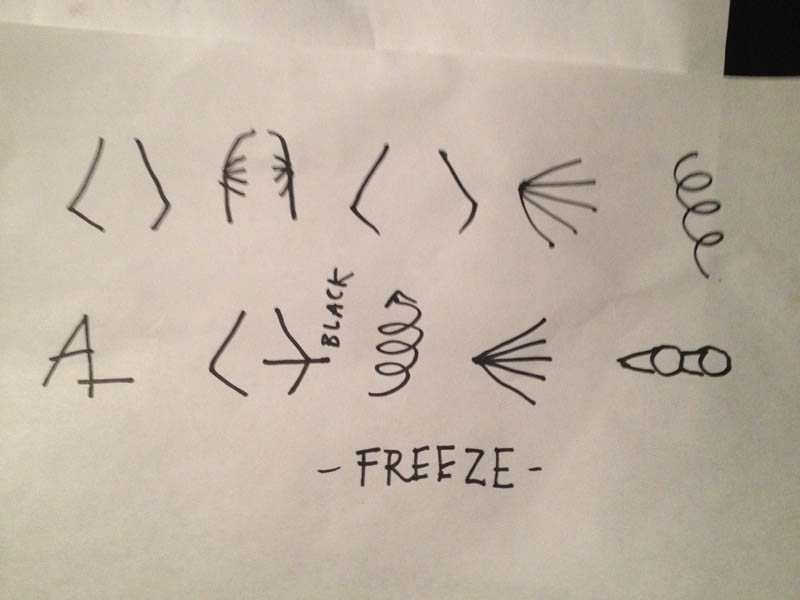 A
BLACK
- FREEZE -